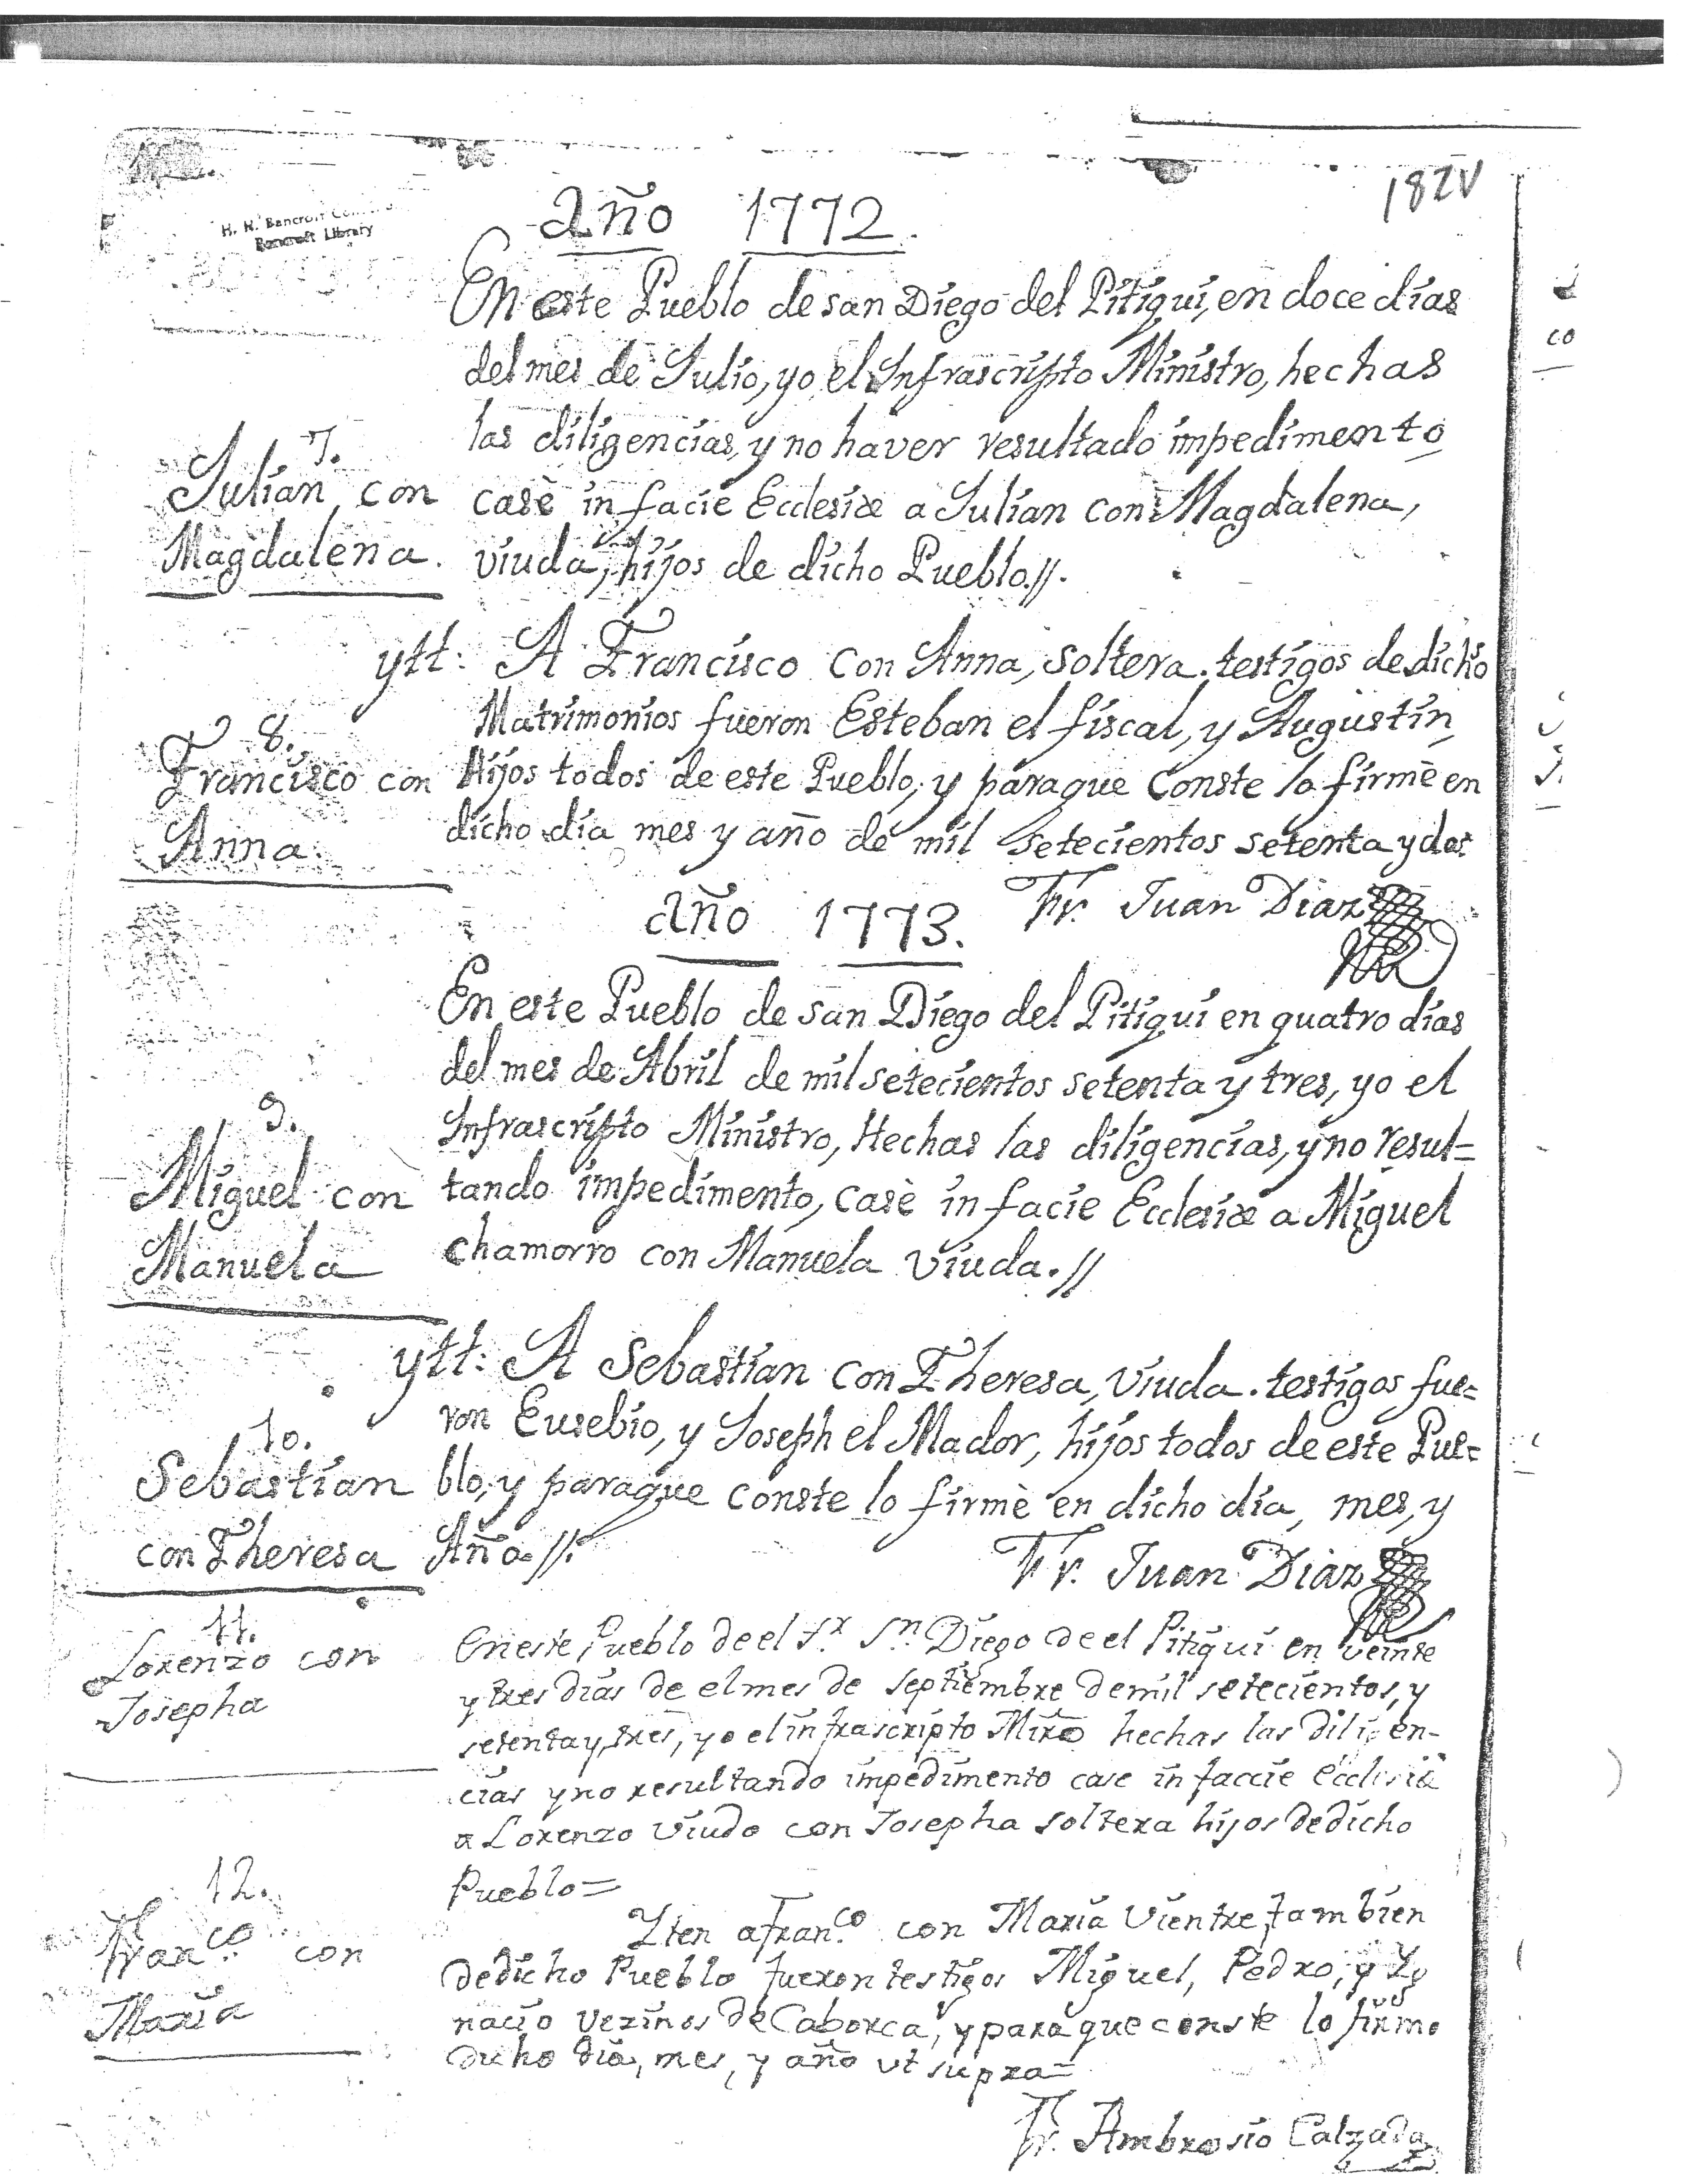 182V
H. H. Bancroft
Bancroft Library
Año 1772.
En este Pueblo de san Diego del Pitiqui, en doce dias
del mes de Julio, yo el Infrascripto Ministro, hechas
las diligencias, y no haver resultado impedimento
7.
Julian con
Magdalena.
casè in facie Ecclesiæ a Julian con Magdalena,
viuda, hijos de dicho Pueblo.//.
ytt: A Francisco con Anna, soltera. testigos de dicho
Matrimonios fueron Esteban el fiscal, y Augustin,
8.
Francisco con
Anna.
Hijos todos de este Pueblo, y paraque Conste lo firmè en
dicho dia mes y año de mil setecientos setenta y dos
Fr. Juan Diaz
Año 1773.
En este Pueblo de san Diego del Pitiqui en quatro dias
del mes de Abril de mil setecientos setenta y tres, yo el
Infrascripto Ministro, Hechas las diligencias, y no resul=
9.
Miguel con
Manuela
tando impedimento, casè in facie Ecclesiæ a Miguel
chamorro con Manuela Viuda.//
ytt: A Sebastian con Theresa, Viuda. testigos fue=
ron Eusebio, y Joseph el Mador, hijos todos de este Pue=
10.
Sebastian
con Theresa
blo, y paraque conste lo firmè en dicho dia, mes, y
Año.//.
Fr. Juan Diaz
11.
Lorenzo con
Josepha
En este Pueblo de el Sr. Sn. Diego de el Pitiqui en veinte
y tres dias de el mes de septiembre de mil setecientos, y
setenta y, tres, yo el infrascripto Miro hechas las diligen-
cias y no resultando impedimento case in faccie Ecclesiæ
a Lorenzo Viudo con Josepha soltera hijos de dicho
Pueblo=
12.
Franco. con
Maria
Yten a Franco. con Maria Vientre, tambien
de dicho Pueblo fueron testigos Miguel, Pedro, y Yg
nacio vezinos de Caborca, y para que conste lo firmo
dicho dia, mes, y año ut supra=
Fr. Ambrosio Calzada